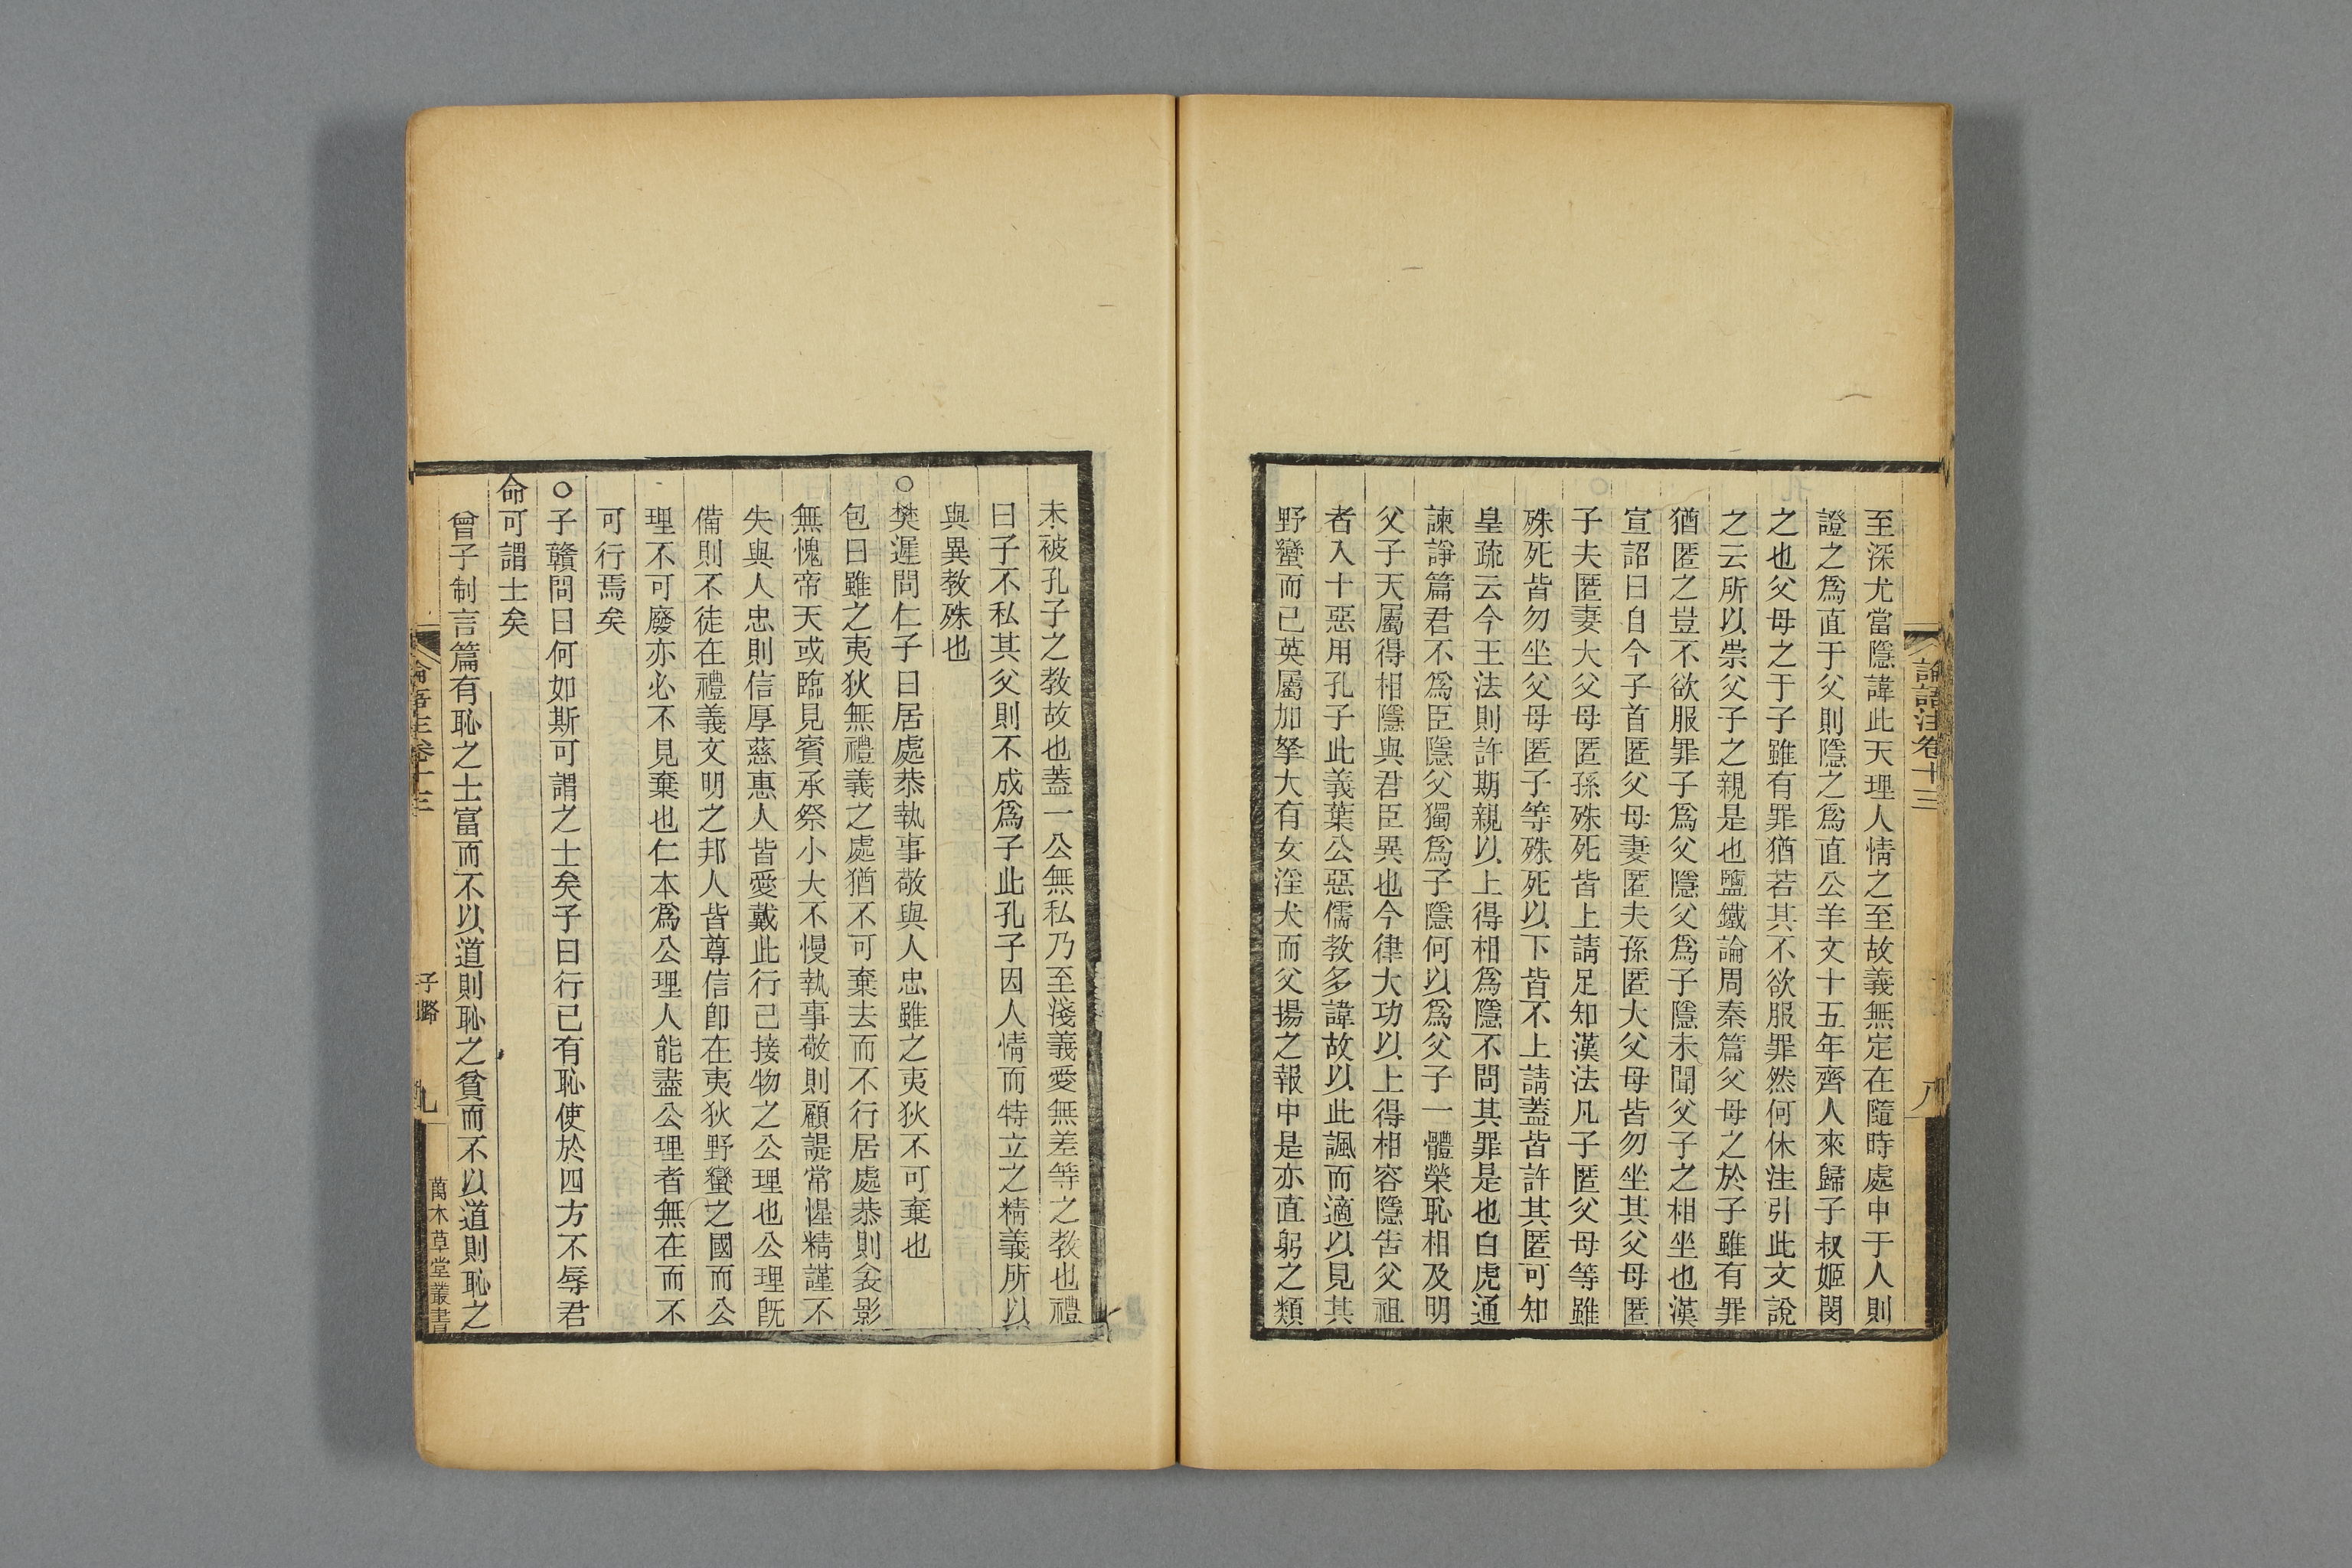 論語注卷十三
八
至深尤當隱諱此天理人情之至故義無定在隨時處中于人則
證之爲直于父則隱之爲直公羊文十五年齊人來歸子叔姬閔
之也父母之于子雖有罪猶若其不欲服罪然何休注引此文說
之云所以崇父子之親是也鹽鐵論周秦篇父母之於子雖有罪
猶匿之豈不欲服罪子爲父隱父爲子隱未聞父子之相坐也漢
宣詔曰自今子首匿父母妻匿夫孫匿大父母皆勿坐其父母匿
子夫匿妻大父母匿孫殊死皆上請足知漢法凡子匿父母等雖
殊死皆勿坐父母匿子等殊死以下皆不上請蓋皆許其匿可知
皇疏云今王法則許期親以上得相爲隱不問其罪是也白虎通
諫諍篇君不爲臣隱父獨爲子隱何以爲父子一體榮恥相及明
父子天屬得相隱與君臣異也今律大功以上得相容隱告父祖
者入十惡用孔子此義葉公惡儒教多諱故以此諷而適以見其
野蠻而已英屬加拏大有女淫犬而父揚之報中是亦直躬之類
未被孔子之教故也蓋一公無私乃至淺義愛無差等之教也禮
曰子不私其父則不成爲子此孔子因人情而特立之精義所以
與異教殊也
○樊遲問仁子曰居處恭執事敬與人忠雖之夷狄不可棄也
包曰雖之夷狄無禮義之處猶不可棄去而不行居處恭則衾影
無愧帝天或臨見賓承祭小大不慢執事敬則顧諟常惺精謹不
失與人忠則信厚慈惠人皆愛戴此行己接物之公理也公理旣
備則不徒在禮義文明之邦人皆尊信卽在夷狄野蠻之國而公
理不可廢亦必不見棄也仁本爲公理人能盡公理者無在而不
可行焉矣
○子贛問曰何如斯可謂之士矣子曰行己有恥使於四方不辱君
命可謂士矣
曾子制言篇有恥之士富而不以道則恥之貧而不以道則恥之
論語注卷十三
子路
九
萬木草堂叢書